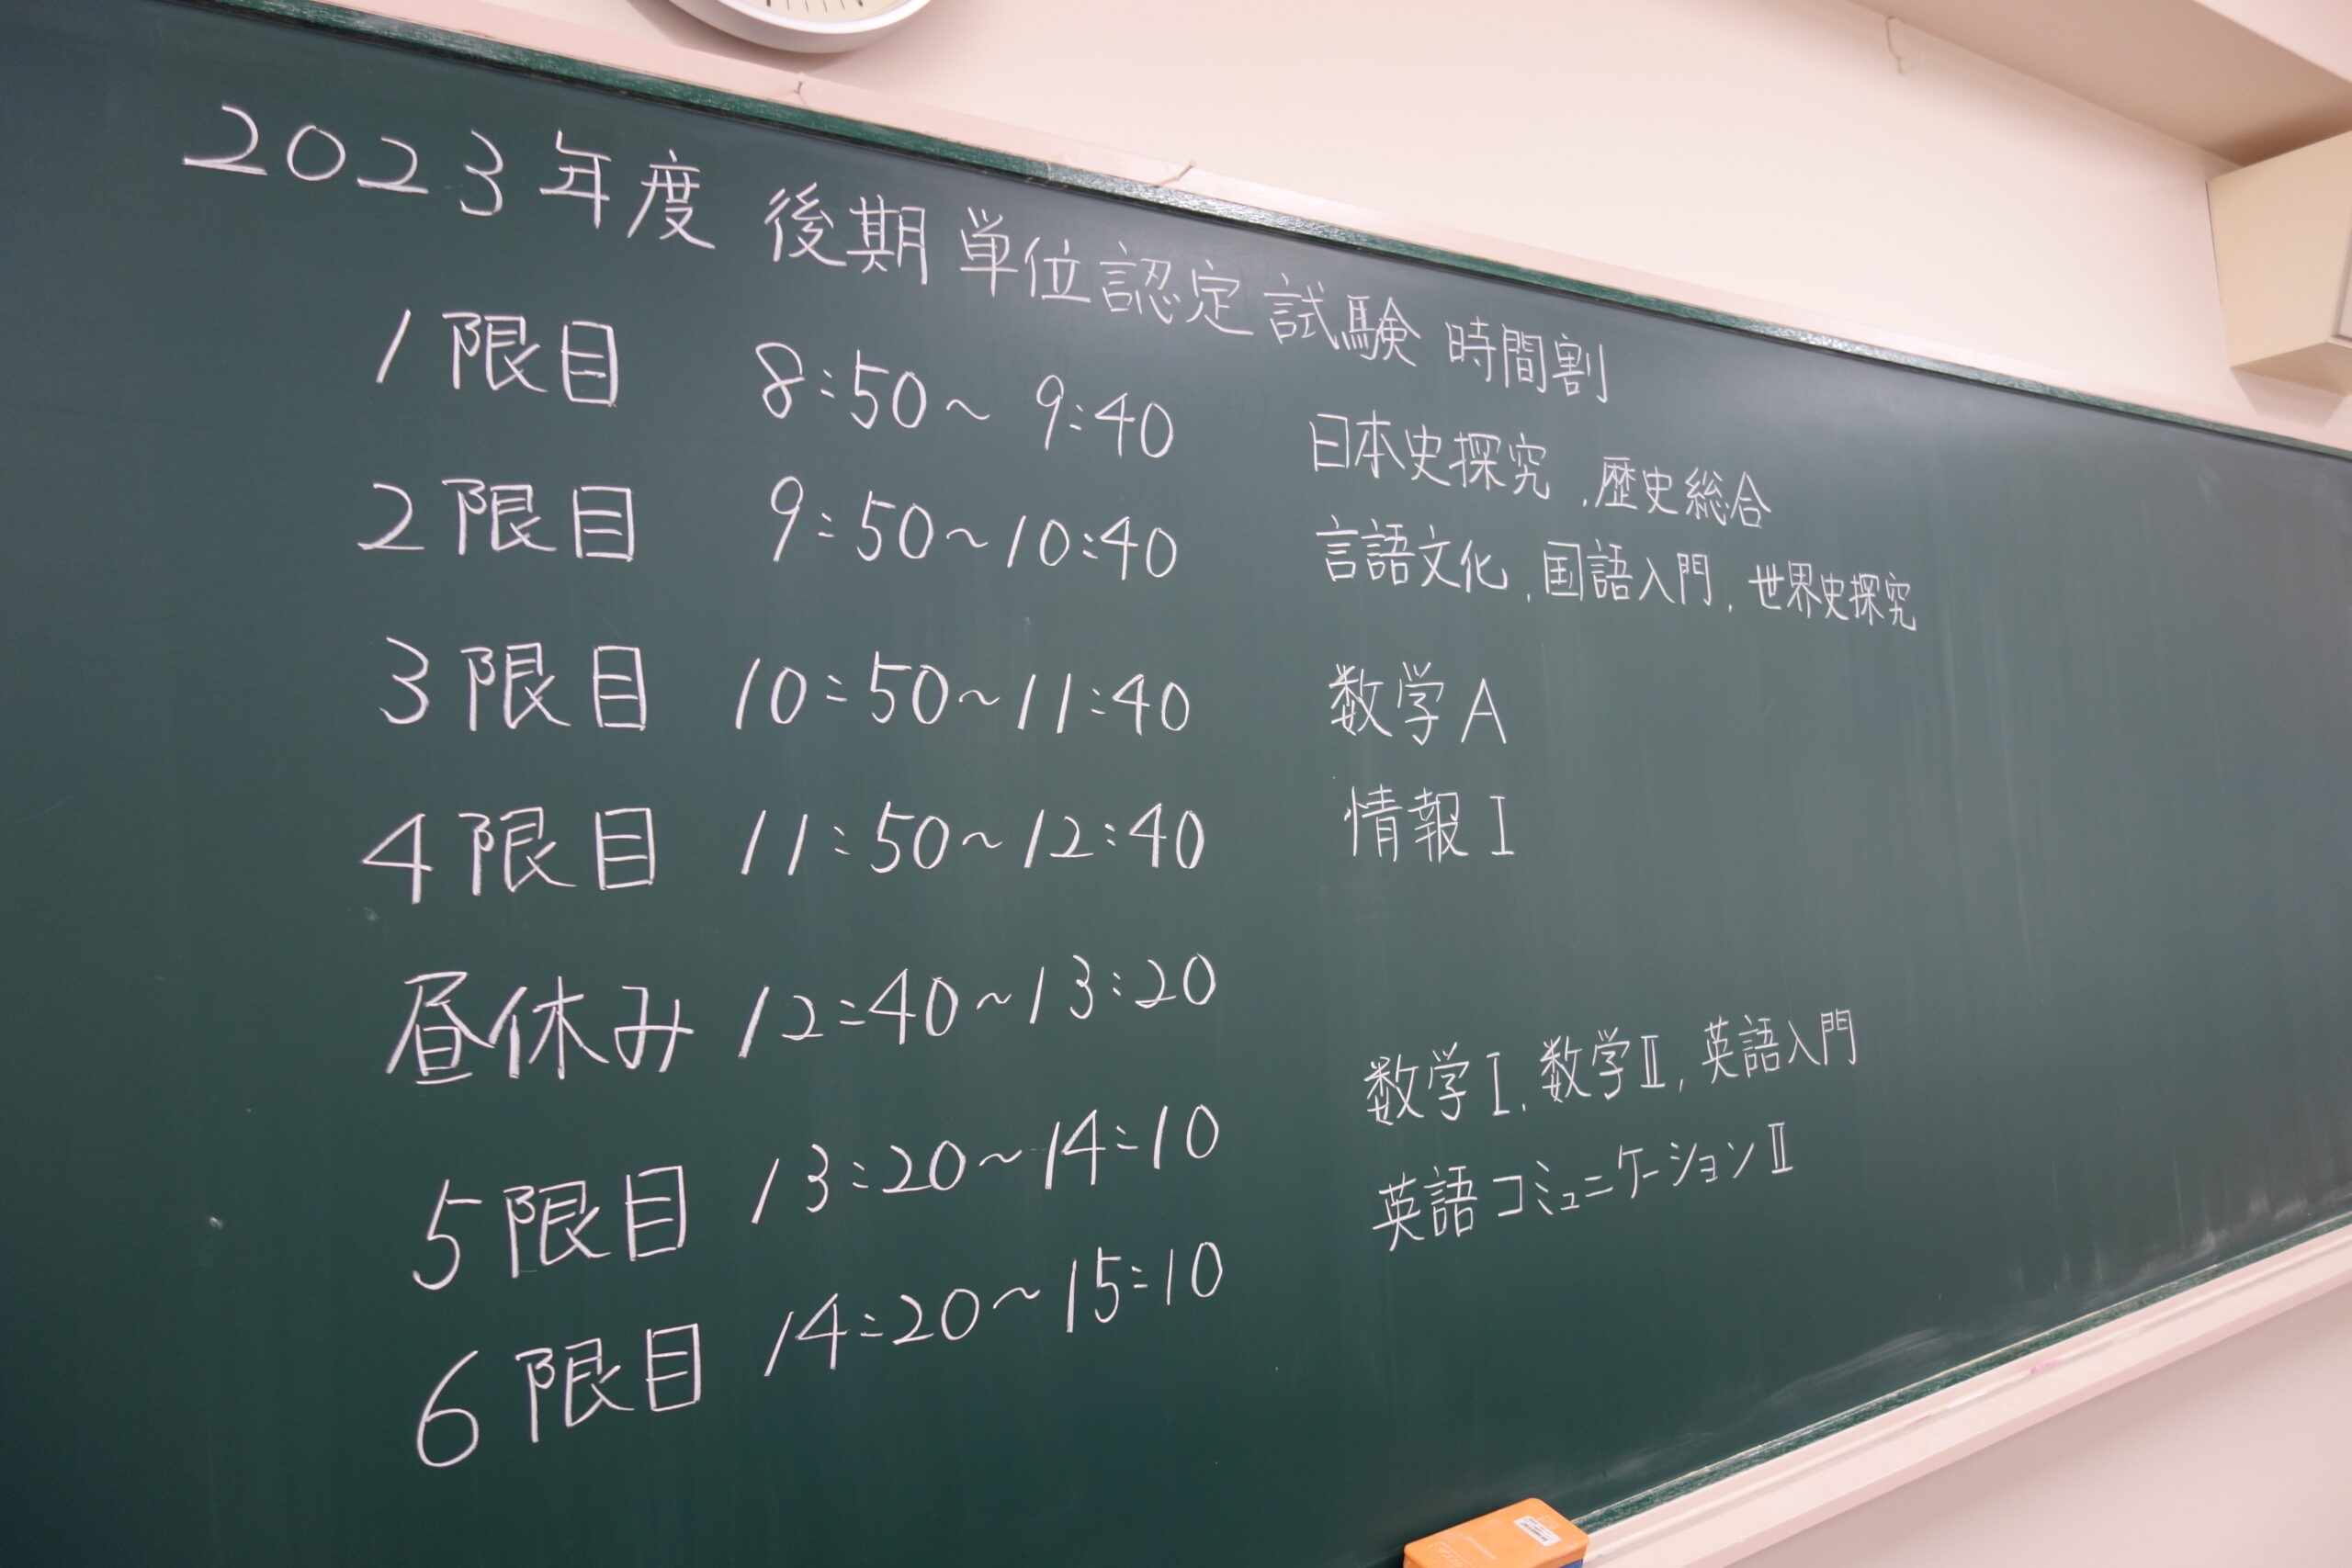 2023年度 後期 単位認定試験 時間割
1限目 8:50～9:40 日本史探究,歴史総合
2限目 9:50～10:40 言語文化,国語入門,世界史探究
3限目 10:50～11:40 数学A
4限目 11:50～12:40 情報I
昼休み 12:40～13:20
5限目 13:20～14:10 数学I,数学II,英語入門
6限目 14:20～15:10 英語コミュニケーションII